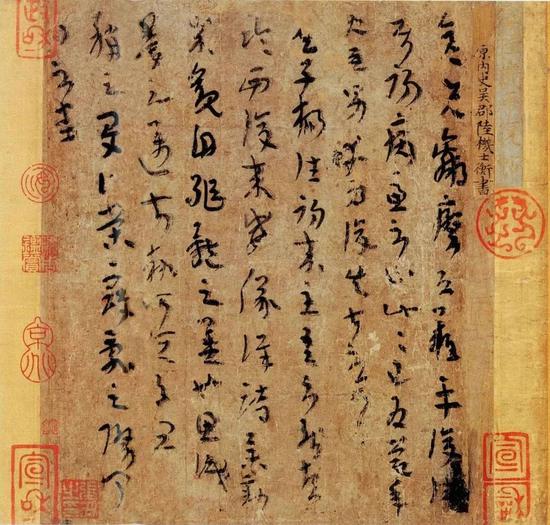 原內史吳郡陸機士衡書
彥先羸瘵恐難平復往屬
初病慮不止此此已為慶承
使唯男幸為復失前憂耳
吳子楊往初來主吾不能盡
臨西復來威儀詳跱舉動
成觀自軀體之美也思識
量之邁前執所恒有宜
稱之夏伯榮寇亂之際聞
問不悉
宣和
政和
宣和